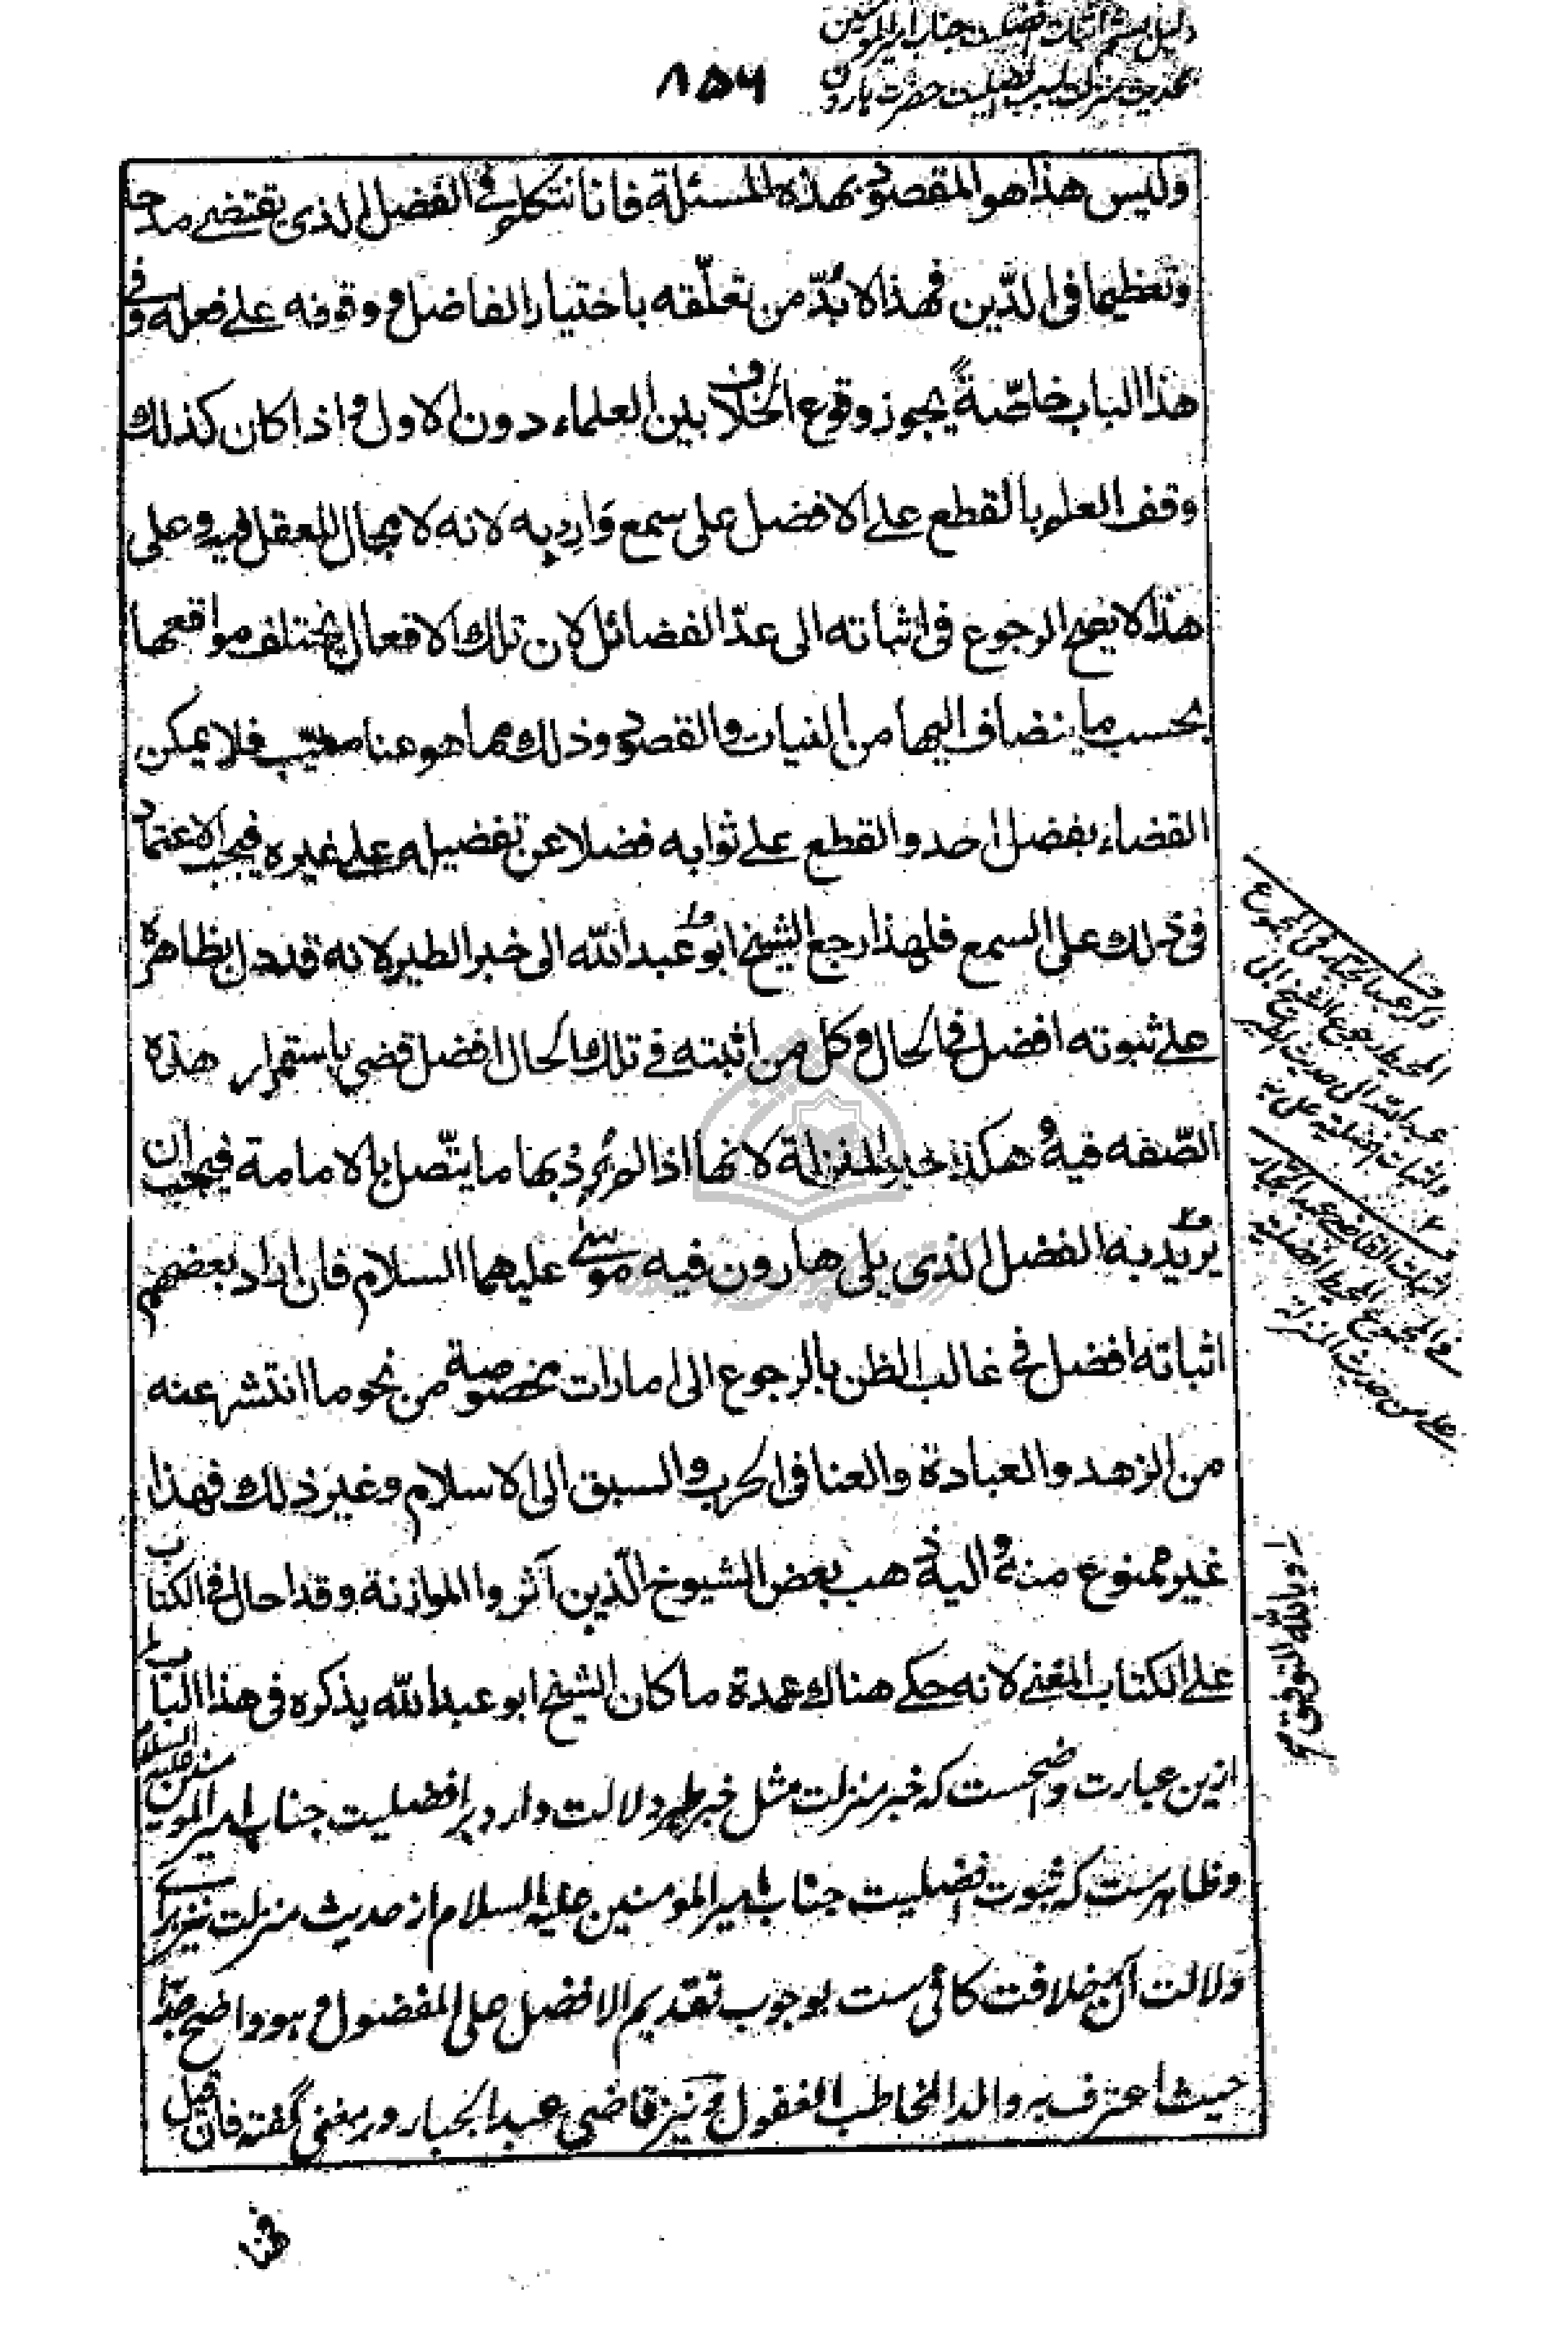 دلیل هشتم اثبات افضلیت جناب امیرالمومنین
بحدیث منزلت بسبب افضلیت حضرت هارون
۸۵۶
ولیس هذا هو المقصود بهذه المسئلة فانا نتکلم فی الفضل الذی یقتضی مدحا
وتعظیما فی الدّین فهذا لا بُدّ من تعلّقه باختیار الفاضل و وقوفه علی فعله و فی
هذا الباب خاصّةً یجوز وقوع الخلاف بین العلماء دون الاول و اذا کان کذلك
وقف العلم بالقطع علی الافضل علی سمع وَارِد به لانه لا مجال للعقل فیه و علی
هذا لا یصح الرجوع فی اثباته الی عدّ الفضائل لان تلك الافعال یختلف مواقعها
بحسب ما ینضاف الیها من النیات والقصود وذلك مما هو عنا مغیّب فلا یمکن
القضاء بفضل احد والقطع علی ثوابه فضلا عن تفضیله علی غیره فیجب الاعتماد
فی ذلك علی السمع فلهذا رجع الشیخ ابو عبد الله الی خبر الطیر لانه قد دل بظاهره
علی ثبوته افضل فی الحال و کل من اثبته فی تلك الحال افضل قضی باستمرار هذه
الصّفه فیه و هکذا خبر المنزلة لانها اذا لم یُرِدْ بها ما یتّصل بالامامة فیجب ان
یرید به الفضل الذی یلی هارون فیه موسی علیهما السلام فان اراد بعضهم
اثباته افضل فی غالب الظن بالرجوع الی امارات مخصوصة من نحو ما انتشر عنه
من الزهد والعبادة والعنا فی الحرب والسبق الی الاسلام وغیر ذلك فهذا
غیر ممنوع منه و الیه ذهب بعض الشیوخ الّذین آثروا الموازنة وقد احال فی الکتاب
علی الکتاب المغنی لانه حکی هناك عمدة ما کان الشیخ ابو عبد الله یذکره فی هذا الباب
ازین عبارت واضحست که خبر منزلت مثل خبر طیر دلالت دارد بر افضلیت جناب امیر المومنین علیه السلام
وظاهرست که ثبوت افضلیت جناب امیر المومنین علیه السلام از حدیث منزلت نیز برای
دلالت آن بر خلافت کافی ست بوجوب تقدیم الافضل علی المفضول و هو واضح جدّا
حیث اعترف به والد المخاطب الغفول و نیز قاضی عبد الجبار در مغنی گفته فان قیل
فهنا
ذکر عبد الجبار فی المجموع
المحیط رجوع الشیخ ابی
عبد الله الی حدیث الطیر
واثبات افضلیة علی به
اثبات القاضی عبد الجبار
فی المجموع المحیط افضلیة
علی من حدیث المنزلة
وبالله التوفیق